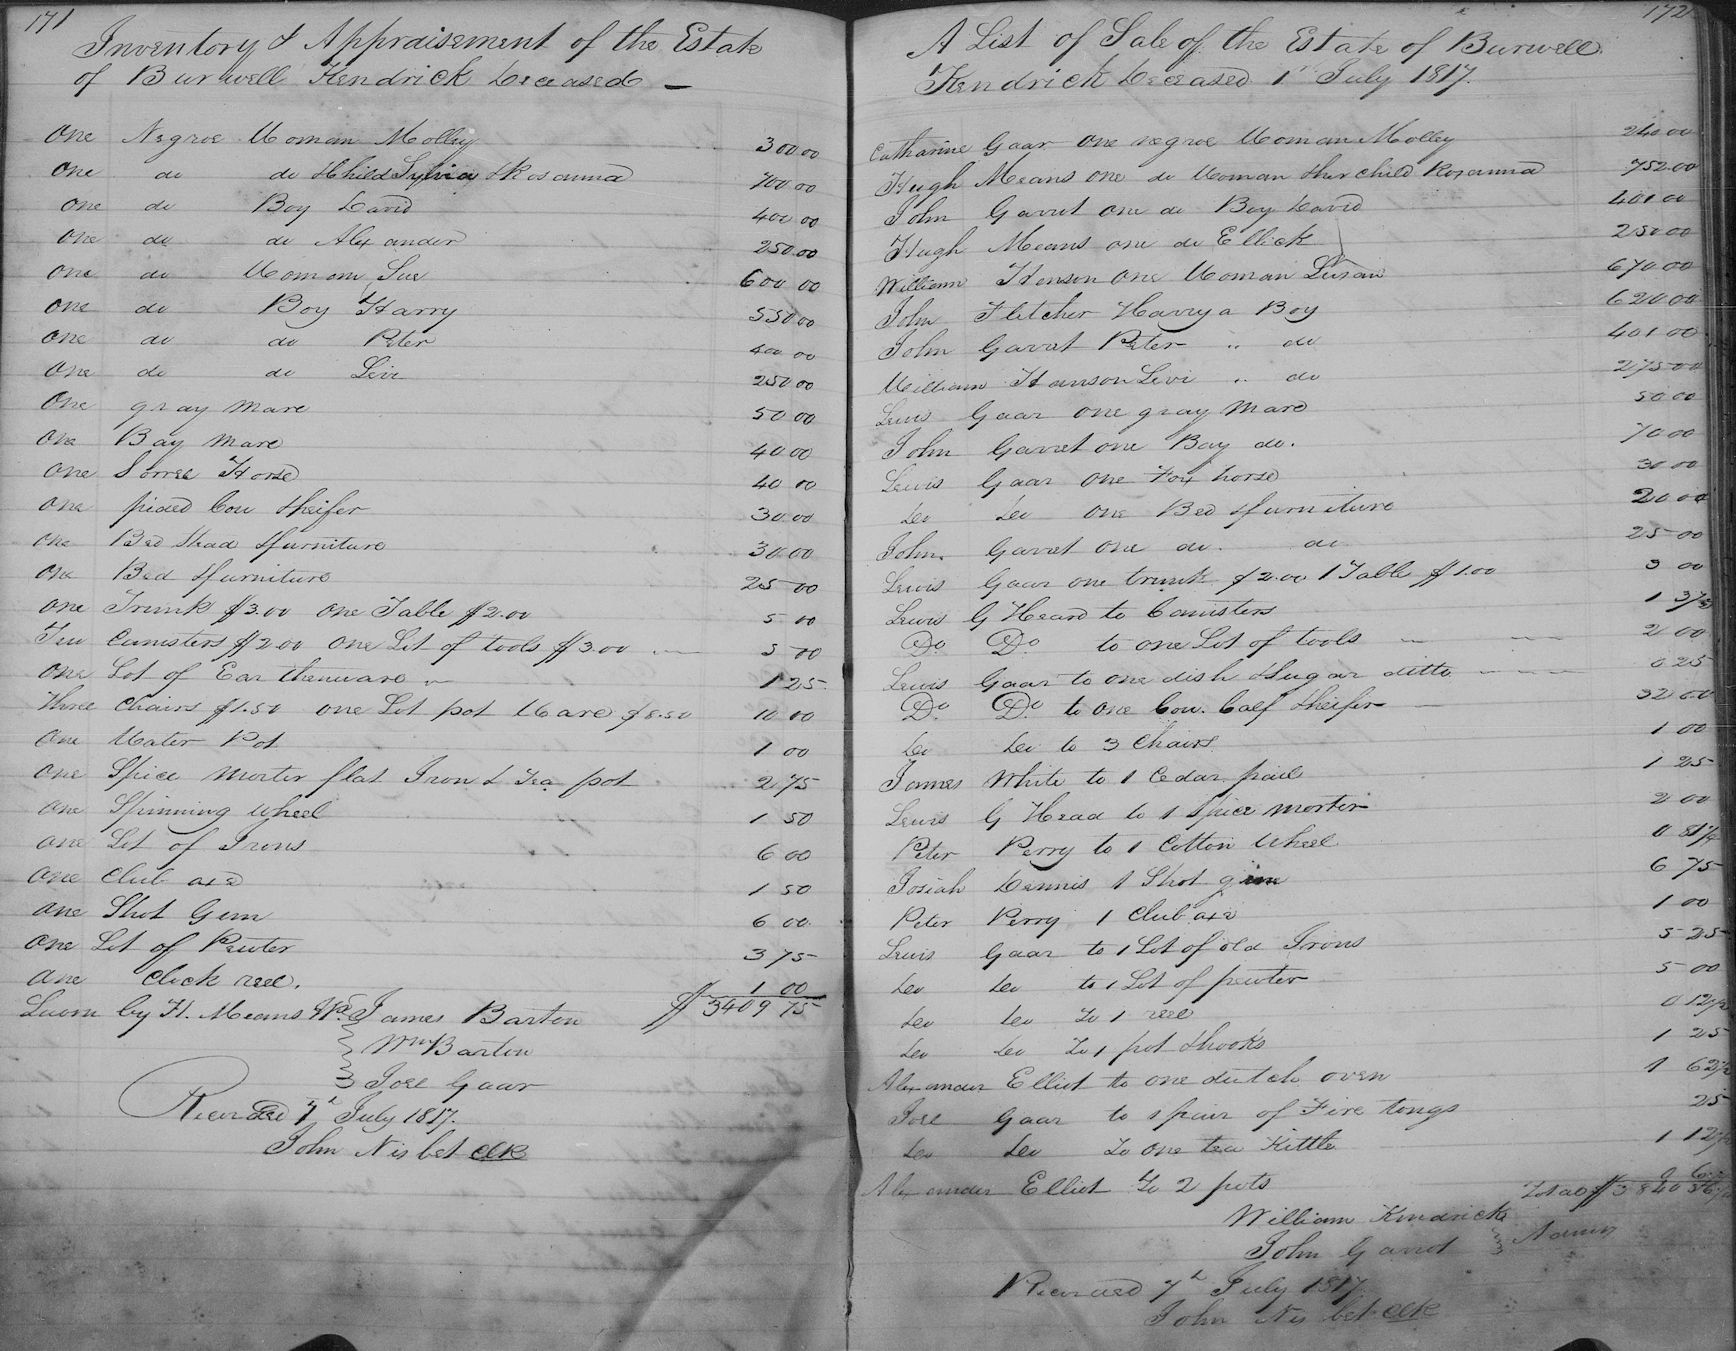 171
Inventory & Appraisement of the Estate
of Burwell Kendrick Deceased —
One Negroe Woman Molley 300 00
One do do & Child Sylvia & Rosanna 700 00
One do Boy David 400 00
One do do Alexander 250 00
One do Woman Sue 600 00
One do Boy Harry 550 00
One do do Peter 400 00
One do do Levi 250 00
One gray mare 50 00
One Bay mare 40 00
One Sorrel Horse 40 00
One pided Cow & heifer 30 00
One Bed Stead & furniture 30 00
One Bed & furniture 25 00
One Trunk $3.00 one Table $2.00 5 00
Two Canisters $2.00 one Lot of tools $3.00 5 00
One Lot of Earthenware 1 25
Three Chairs $1.50 one Lot pot Ware $8.50 10 00
One Water Pot 1 00
One Spice morter flat Iron & Tea pot 2 75
One Spinning Wheel 1 50
One Lot of Irons 6 00
One Club axe 1 50
One Shot Gun 6 00
One Lot of Pewter 3 75
One Click reel. 1 00
Sworn by H. Means James Barton $3409 75
Wm Barton
Joel Gaar
Recorded 7th July 1817.
John Nisbet Clk
172
A List of Sale of the Estate of Burwell
Kendrick Deceased 1st July 1817.
Catharine Gaar one negroe Woman Molley 240 00
Hugh Means one do Woman & her child Rosanna 752 00
John Garret one do Boy David 401 00
Hugh Means one do Ellick 250 00
William Henson One Woman Susan 670 00
John Fletcher Harry a Boy 620 00
John Garret Peter " do 401 00
William Hanson Levi " do 275 00
Lewis Gaar one gray mare 50 00
John Garret one Bay do. 70 00
Lewis Gaar one Fox horse 30 00
Do Do one Bed & furniture 20 00
John Garret one do. do 25 00
Lewis Gaar one trunk $2.00 1 Table $1.00 3 00
Lewis G Heard to Canisters 1 37½
Do Do to one Lot of tools 2 00
Lewis Gaar to one dish & Sugar ditto 0 25
Do Do to one Cow. Calf & heifer 32 00
Do Do to 3 Chairs 1 00
James White to 1 Cedar pail 1 25
Lewis G Head to 1 Spice morter 2 00
Peter Perry to 1 Cotton Wheel 0 81¼
Josiah Dennis 1 Shot gun 6 75
Peter Perry 1 Club axe 1 00
Lewis Gaar to 1 Lot of old Irons 5 25
Do Do to 1 Lot of pewter 5 00
Do Do To 1 reel 0 12½
Do Do To 1 pot & hooks 1 25
Alexander Elliot to one dutch oven 1 62½
Joel Gaar to 1 pair of Fire tongs 25
Do Do To one tea Kittle 1 12½
Alexander Elliot To 2 pots
Total $3840
William Kindrick
John Garrot Admrs
Recorded 7th July 1817
John Nisbet Clk